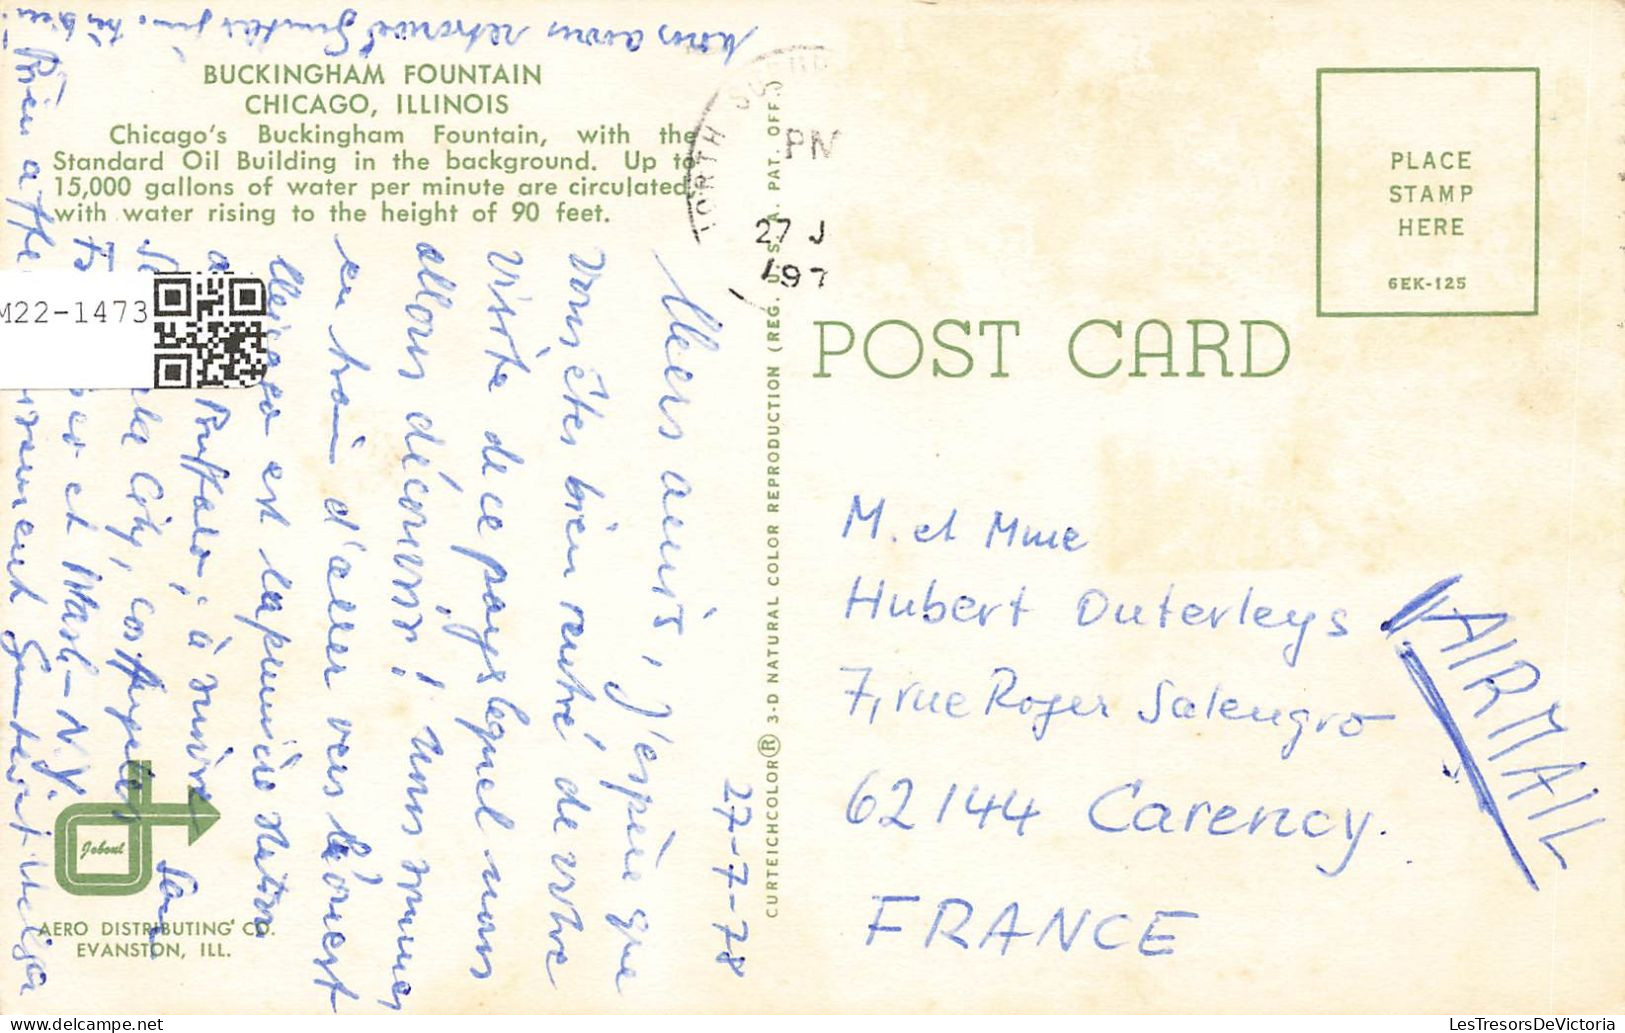 Nous avons retrouvé Gunter
BUCKINGHAM FOUNTAIN
CHICAGO, ILLINOIS
Chicago's Buckingham Fountain, with the
Standard Oil Building in the background. Up to
15,000 gallons of water per minute are circulated
with water rising to the height of 90 feet.
27-7-78
Chers amis, j'espère que
vous êtes bien rentré de votre
visite de ce pays lequel nous
allons découvrir! Nous sommes
en train d'aller vers l'ouest
Chicago est la première station
Buffalo, à suivre
City, Los Angeles
et Wash-N.Y.
Bien
M22-1473
Jaboul
AERO DISTRIBUTING CO.
EVANSTON, ILL.
CURTEICHCOLOR® 3-D NATURAL COLOR REPRODUCTION (REG. U.S.A. PAT. OFF.)
NORTH
PM
27 J
197
PLACE
STAMP
HERE
6EK-125
POST CARD
M. et Mme
Hubert Outerleys
7, rue Roger Salengro
62144 Carency.
FRANCE
AIRMAIL
LesTresorsDeVictoria